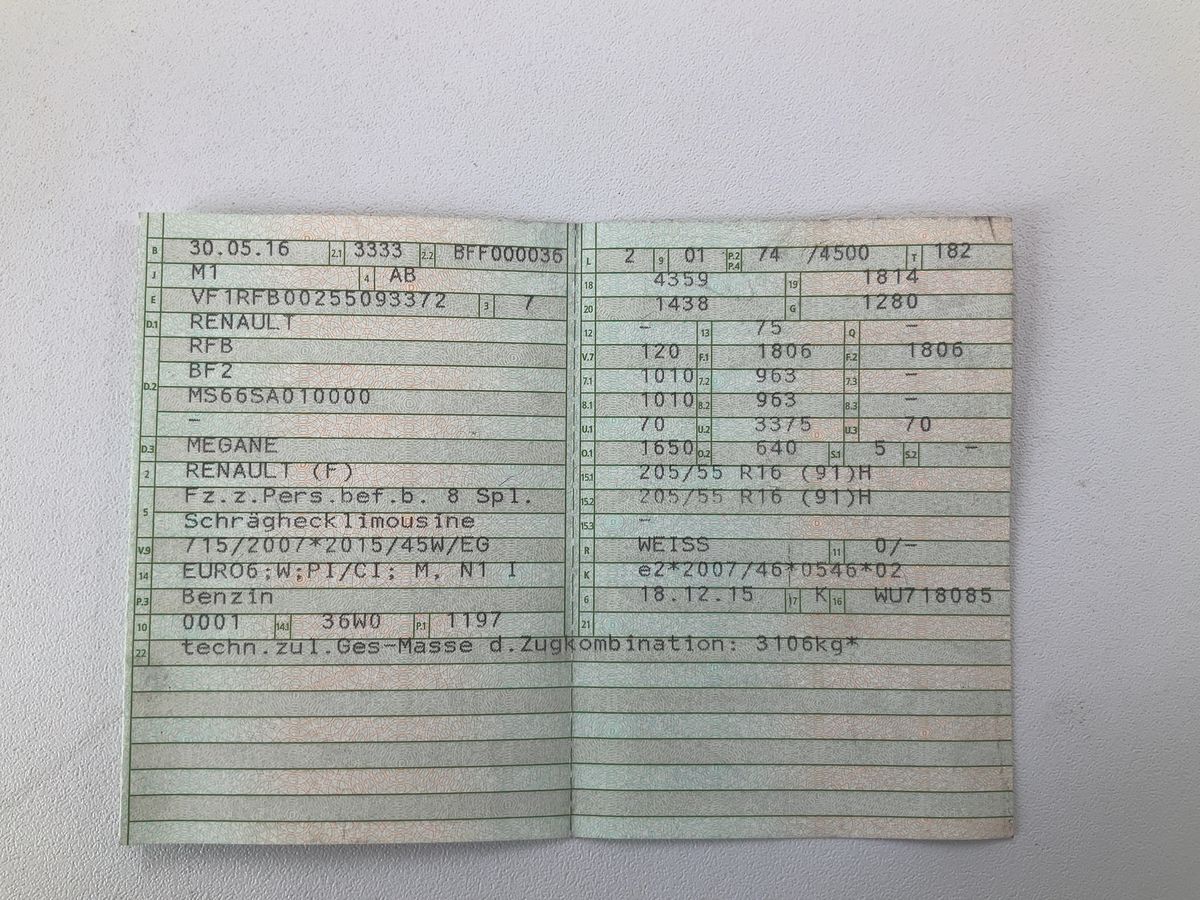 B 30.05.16 2.1 3333 2.2 BFF000036
J M1 4 AB
E VF1RFB00255093372 3 7
D.1 RENAULT
RFB
D.2 BF2
MS66SA010000
–
D.3 MEGANE
2 RENAULT (F)
5 Fz.z.Pers.bef.b. 8 Spl.
Schräghecklimousine
V.9 715/2007*2015/45W/EG
14 EURO6;W;PI/CI; M, N1 I
P.3 Benzin
10 0001 14.1 36W0 P.1 1197
22 techn.zul.Ges-Masse d.Zugkombination: 3106kg*
L 2 9 01 P.2 P.4 74 /4500 T 182
18 4359 19 1814
20 1438 G 1280
12 – 13 75 Q –
V.7 120 F.1 1806 F.2 1806
7.1 1010 7.2 963 7.3 –
8.1 1010 8.2 963 8.3 –
U.1 70 U.2 3375 U.3 70
O.1 1650 O.2 640 S.1 5 S.2 –
15.1 205/55 R16 (91)H
15.2 205/55 R16 (91)H
15.3 –
R WEISS 11 0/–
K e2*2007/46*0546*02
6 18.12.15 17 K 16 WU718085
21